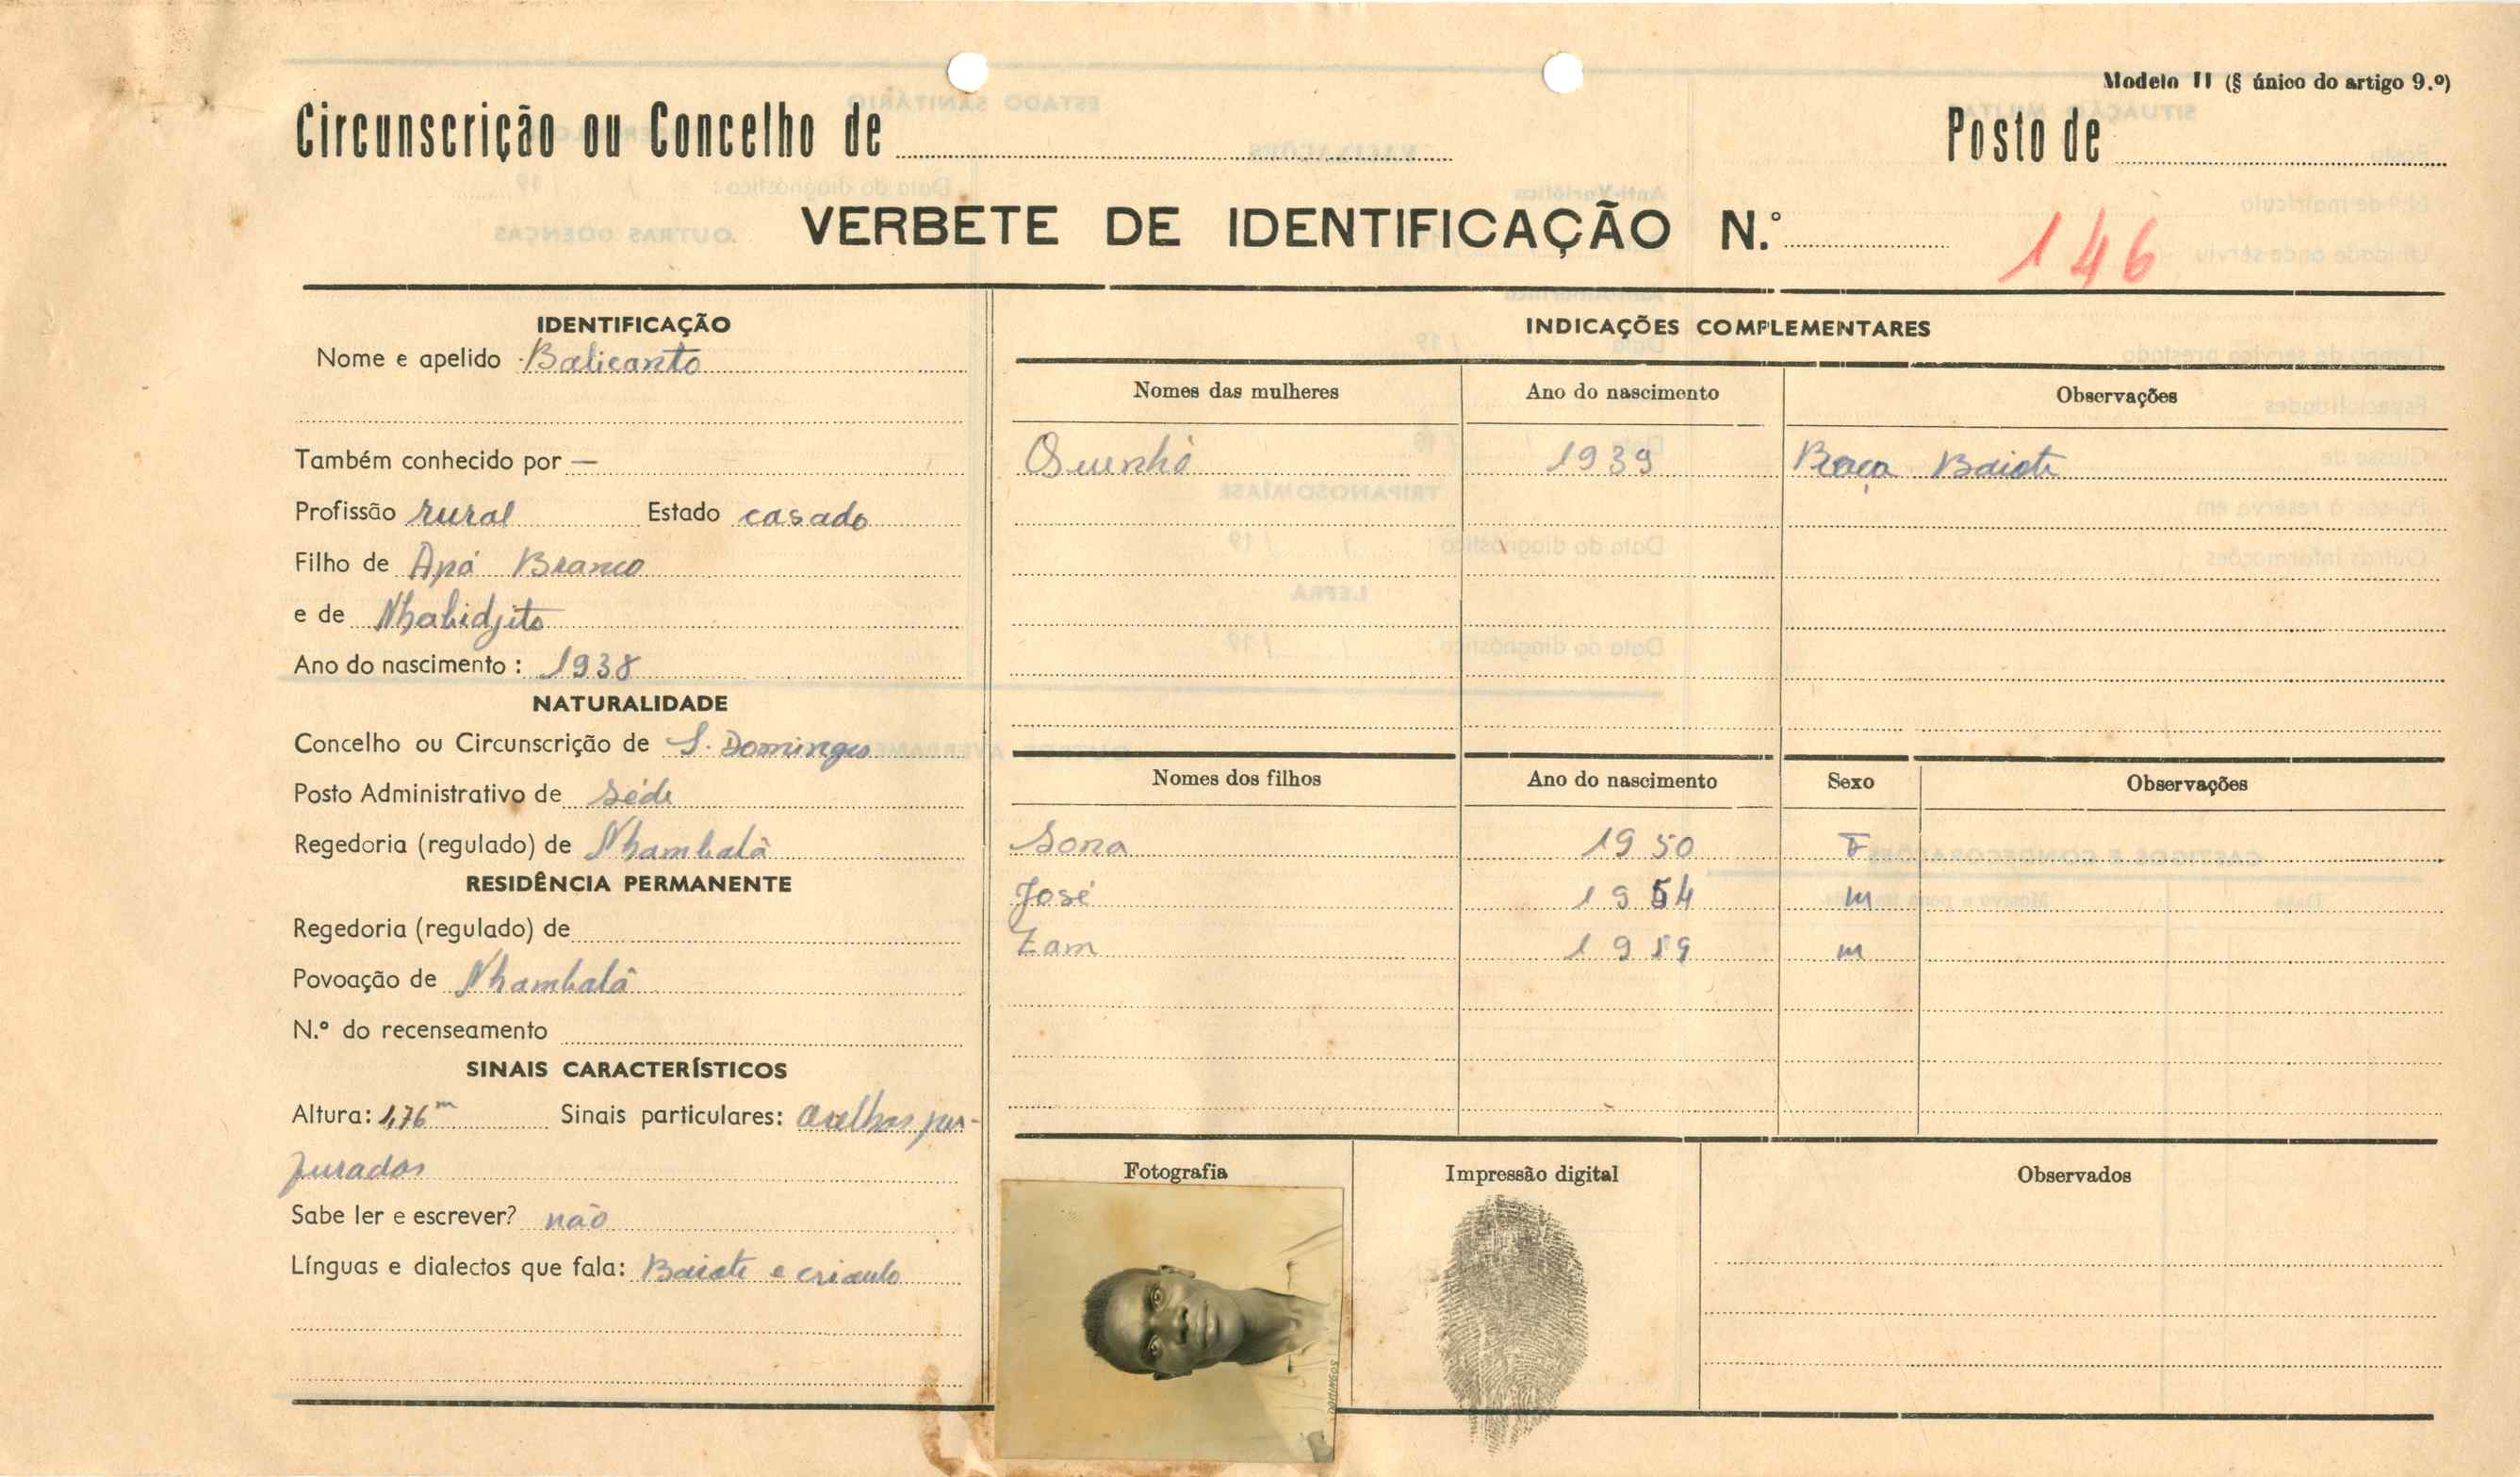 Modelo II (§ único do artigo 9.º)
Circunscrição ou Concelho de Posto de
VERBETE DE IDENTIFICAÇÃO N.º 146
IDENTIFICAÇÃO
Nome e apelido Balicanto
Também conhecido por —
Profissão rural Estado casado
Filho de Apá Branco
e de Nhabidjito
Ano do nascimento : 1938
NATURALIDADE
Concelho ou Circunscrição de S. Domingos
Posto Administrativo de Séde
Regedoria (regulado) de Nhambalã
RESIDÊNCIA PERMANENTE
Regedoria (regulado) de
Povoação de Nhambalã
N.º do recenseamento
SINAIS CARACTERÍSTICOS
Altura: 1,76 m Sinais particulares: orelhas per-
furadas
Sabe ler e escrever? não
Línguas e dialectos que fala: Baiote e crioulo
INDICAÇÕES COMPLEMENTARES
Nomes das mulheres Ano do nascimento Observações
Quinhó 1939 Raça Baiote
Nomes dos filhos Ano do nascimento Sexo Observações
Sona 1950 F
José 1954 m
Zam 1959 m
Fotografia Impressão digital Observados